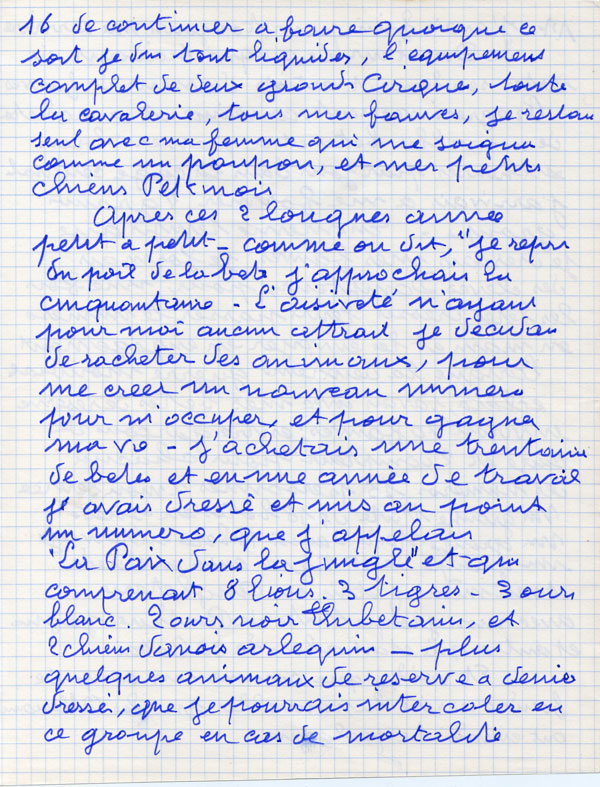 16 de continuer a boire quoique ce
soit je dus tout liquider, l'equipement
complet de deux grands Cirque, toute
la cavalerie, tous mes fauves, je restai
seul avec ma femme qui me soigna
comme un poupon, et mes petits
chiens Pekinois
Apres ces 2 longues année
petit a petit - comme on dit, "je repri
du poil de la bete j'approchais la
cinquantaine - L'oisiveté n'ayant
pour moi aucun attrait je decidai
de racheter des animaux, pour
me creer un nouveau numero
pour m'occuper, et pour gagner
ma vie - j'achetais une trentaine
de betes et en une année de travail
j'avais dressé et mis au point
un numero, que j'appelais
"La Paix dans la jungle" et qui
comprenait 8 lions. 3 tigres - 3 ours
blanc. 2 ours noir Thibetains, et
2 chiens danois arlequin - plus
quelques animaux de reserve a demie
dressé, que je pourrais intercaler en
ce groupe en cas de mortalité